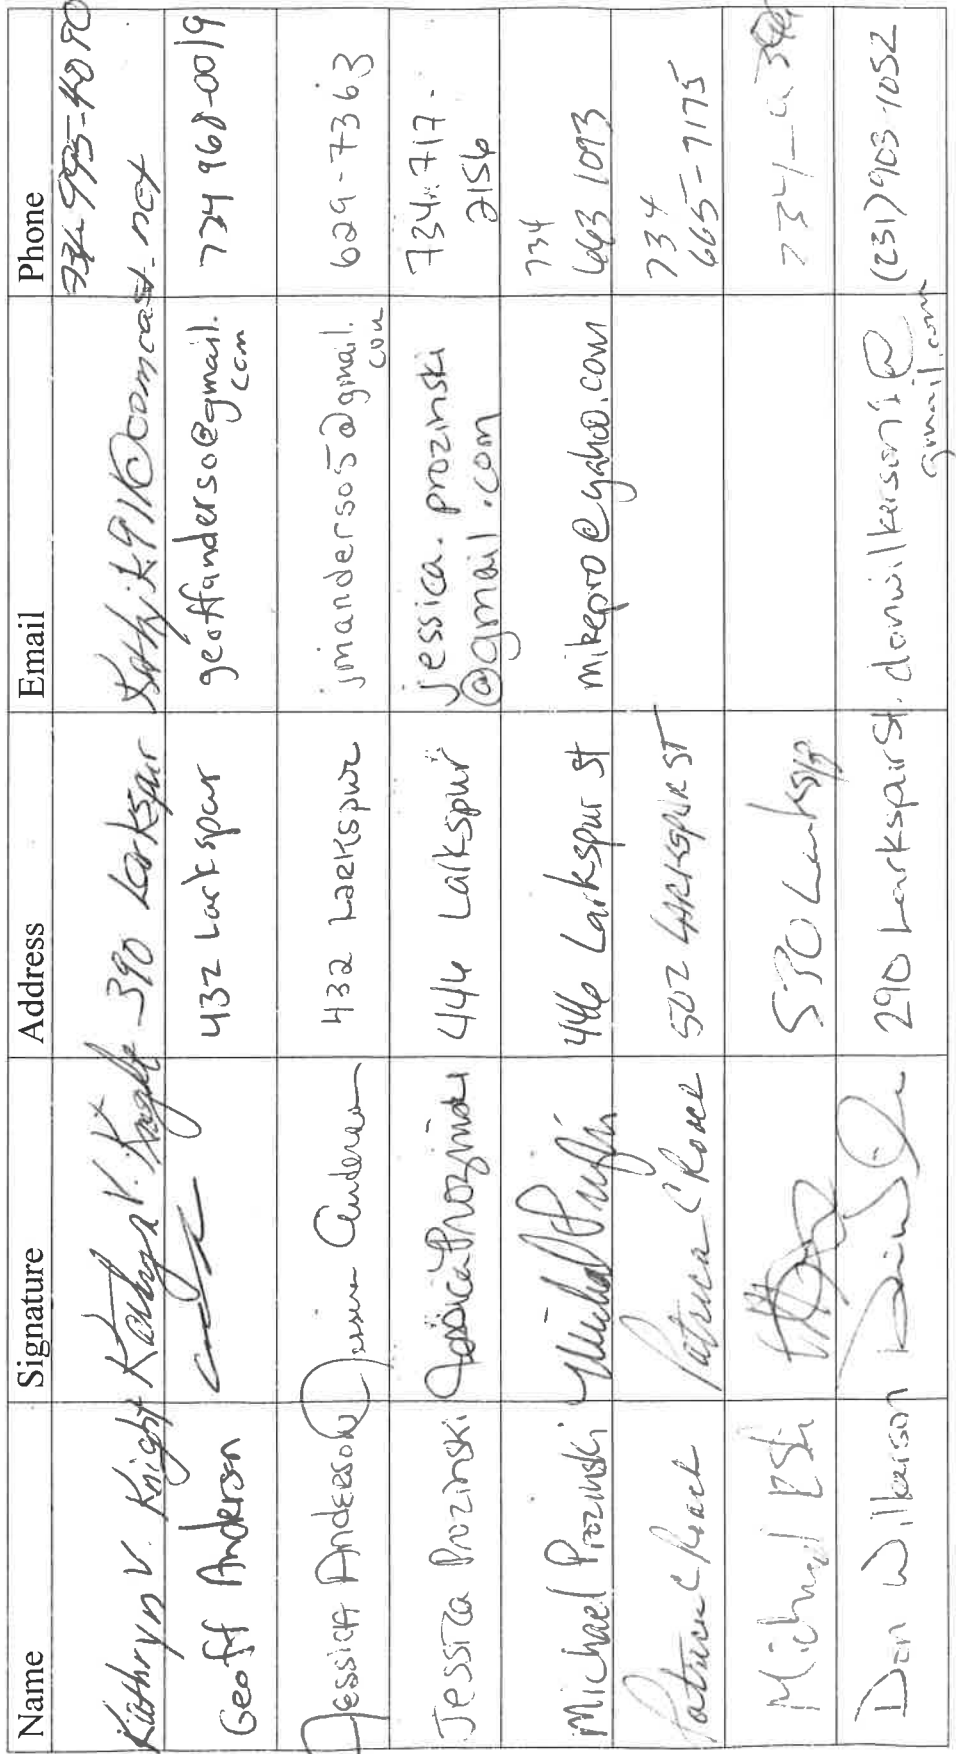 Name Signature Address Email Phone
Kathryn V. Knight Kathryn V. Knight 390 Larkspur kathyjk91@comcast.net 734-995-4090
Geoff Anderson 432 Larkspur geoffanderso@gmail. 734 968-0019
com
Jessica Anderson Jessica Anderson 432 Larkspur jmanderso5@gmail. 629-7363
com
Jessica Prozinski Jessica Prozinski 446 Larkspur jessica.prozinski 734.717.
@gmail.com 2156
734
Michael Prozinski 446 Larkspur St mikepro@yahoo.com 663 1093
734
Patricia C Roach Patricia C Roach 502 LARKSPUR ST 665-7175
Michael 530 Larkspur 734
Don Wilkerson 290 Larkspur St. donwilkerson1@ (231) 903-1052
gmail.com